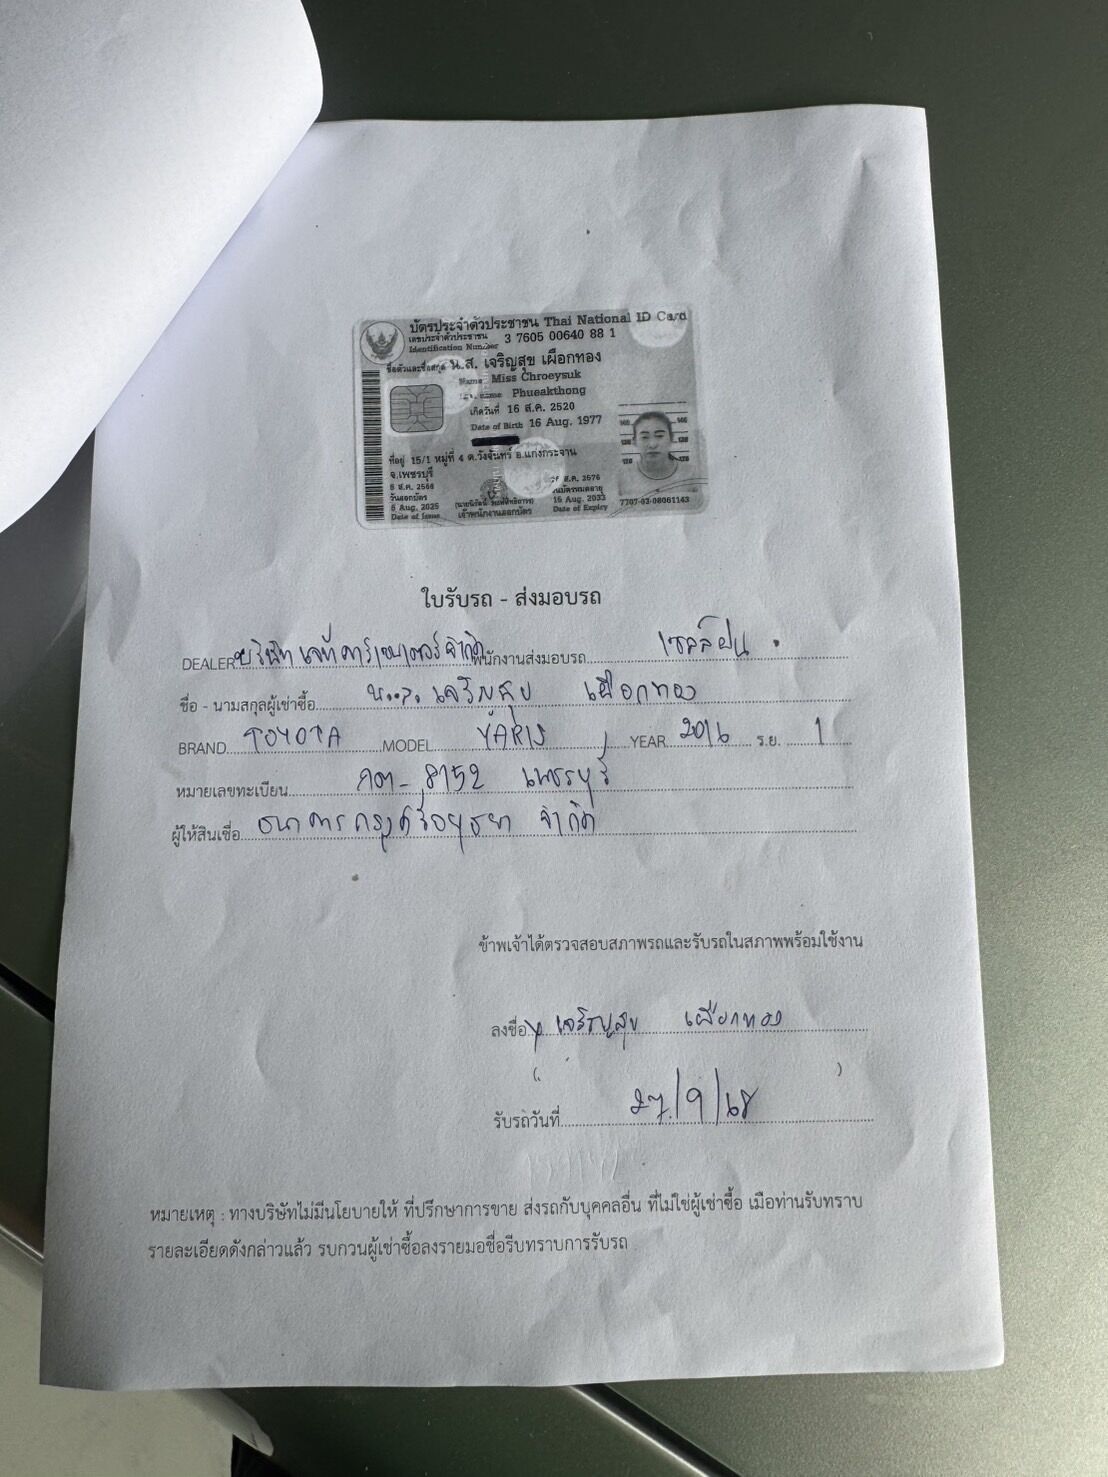 บัตรประจำตัวประชาชน Thai National ID Card
เลขประจำตัวประชาชน 3 7605 00640 88 1
Identification Number
ชื่อตัวและชื่อสกุล น.ส. เจริญสุข เผือกทอง
Name Miss Chroeysuk
Last name Phueakthong
เกิดวันที่ 16 ส.ค. 2520
Date of Birth 16 Aug. 1977
ที่อยู่ 15/1 หมู่ที่ 4 ต.วังจันทร์ อ.แก่งกระจาน
จ.เพชรบุรี
วันออกบัตร
8 Aug. 2025
Date of Issue
เจ้าพนักงานออกบัตร
ส.ค. 2576
วันบัตรหมดอายุ
15 Aug. 2033
Date of Expiry
7707-03-08061143
ใบรับรถ - ส่งมอบรถ
DEALER บริษัท เจท คาร์เซนเตอร์ จำกัด พนักงานส่งมอบรถ เซลล์ฝน
ชื่อ - นามสกุลผู้เช่าซื้อ น.ส. เจริญสุข เผือกทอง
BRAND TOYOTA MODEL YARIS YEAR 2016 ร.ย. 1
หมายเลขทะเบียน 8152 เพชรบุรี
ผู้ให้สินเชื่อ ธนาคารกรุงศรีอยุธยา จำกัด
ข้าพเจ้าได้ตรวจสอบสภาพรถและรับรถในสภาพพร้อมใช้งาน
ลงชื่อ x เจริญสุข เผือกทอง
( )
รับรถวันที่ 27/9/68
หมายเหตุ : ทางบริษัทไม่มีนโยบายให้ ที่ปรึกษาการขาย ส่งรถกับบุคคลอื่น ที่ไม่ใช่ผู้เช่าซื้อ เมื่อท่านรับทราบ
รายละเอียดดังกล่าวแล้ว รบกวนผู้เช่าซื้อลงรายมอชื่อรีบทราบการรับรถ